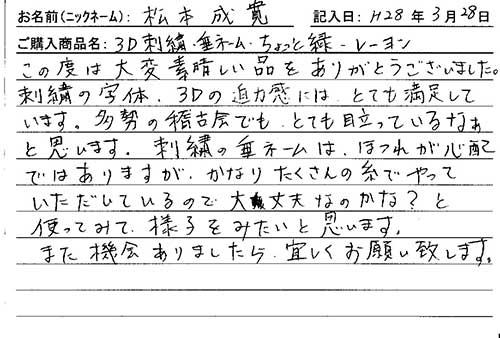 お名前(ニックネーム): 松本 成寛 記入日: H28 年 3 月 28 日
ご購入商品名: 3D刺繍・垂ネーム・ちょっと緑-レーヨン
この度は大変素晴しい品をありがとうございました。
刺繍の字体、3Dの迫力感には、とても満足して
います。多勢の稽古会でも、とても目立っているなぁ
と思います。刺繍の垂ネームは、ほつれが心配
ではありますが、かなりたくさんの糸でやって
いただいているので大丈夫なのかな?と
使ってみて、様子をみたいと思います。
また機会ありましたら、宜しくお願い致します。